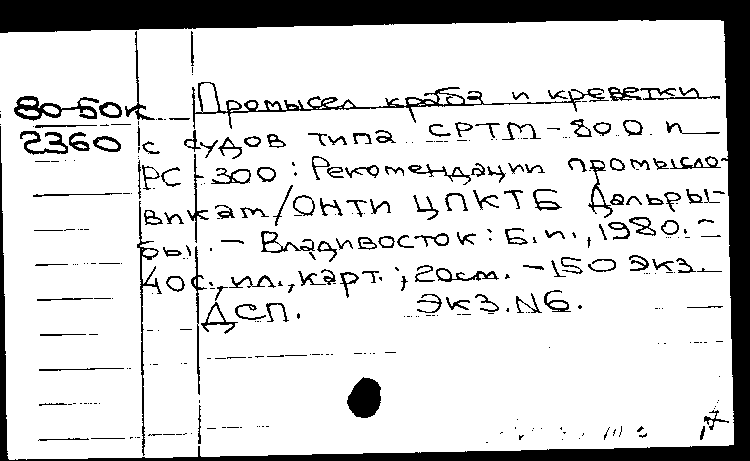 80-50к Промысел краба и креветки
2360 с судов типа СРТМ-800 и
РС-300: Рекомендации промысло-
викам/ОНТИ ЦПКТБ Дальры-
бы. - Владивосток: Б.и., 1980. -
40с., ил., карт.; 20см. - 150 экз.
ДСП. Экз. N6.